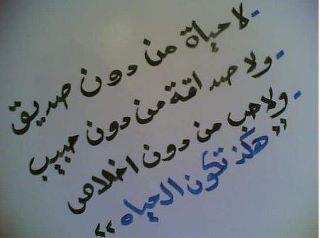 . لا حياة من دون صديق
. ولا صداقة من دون حبيب
. ولا حب من دون اخلاص
" هكذ تكون الحياه "